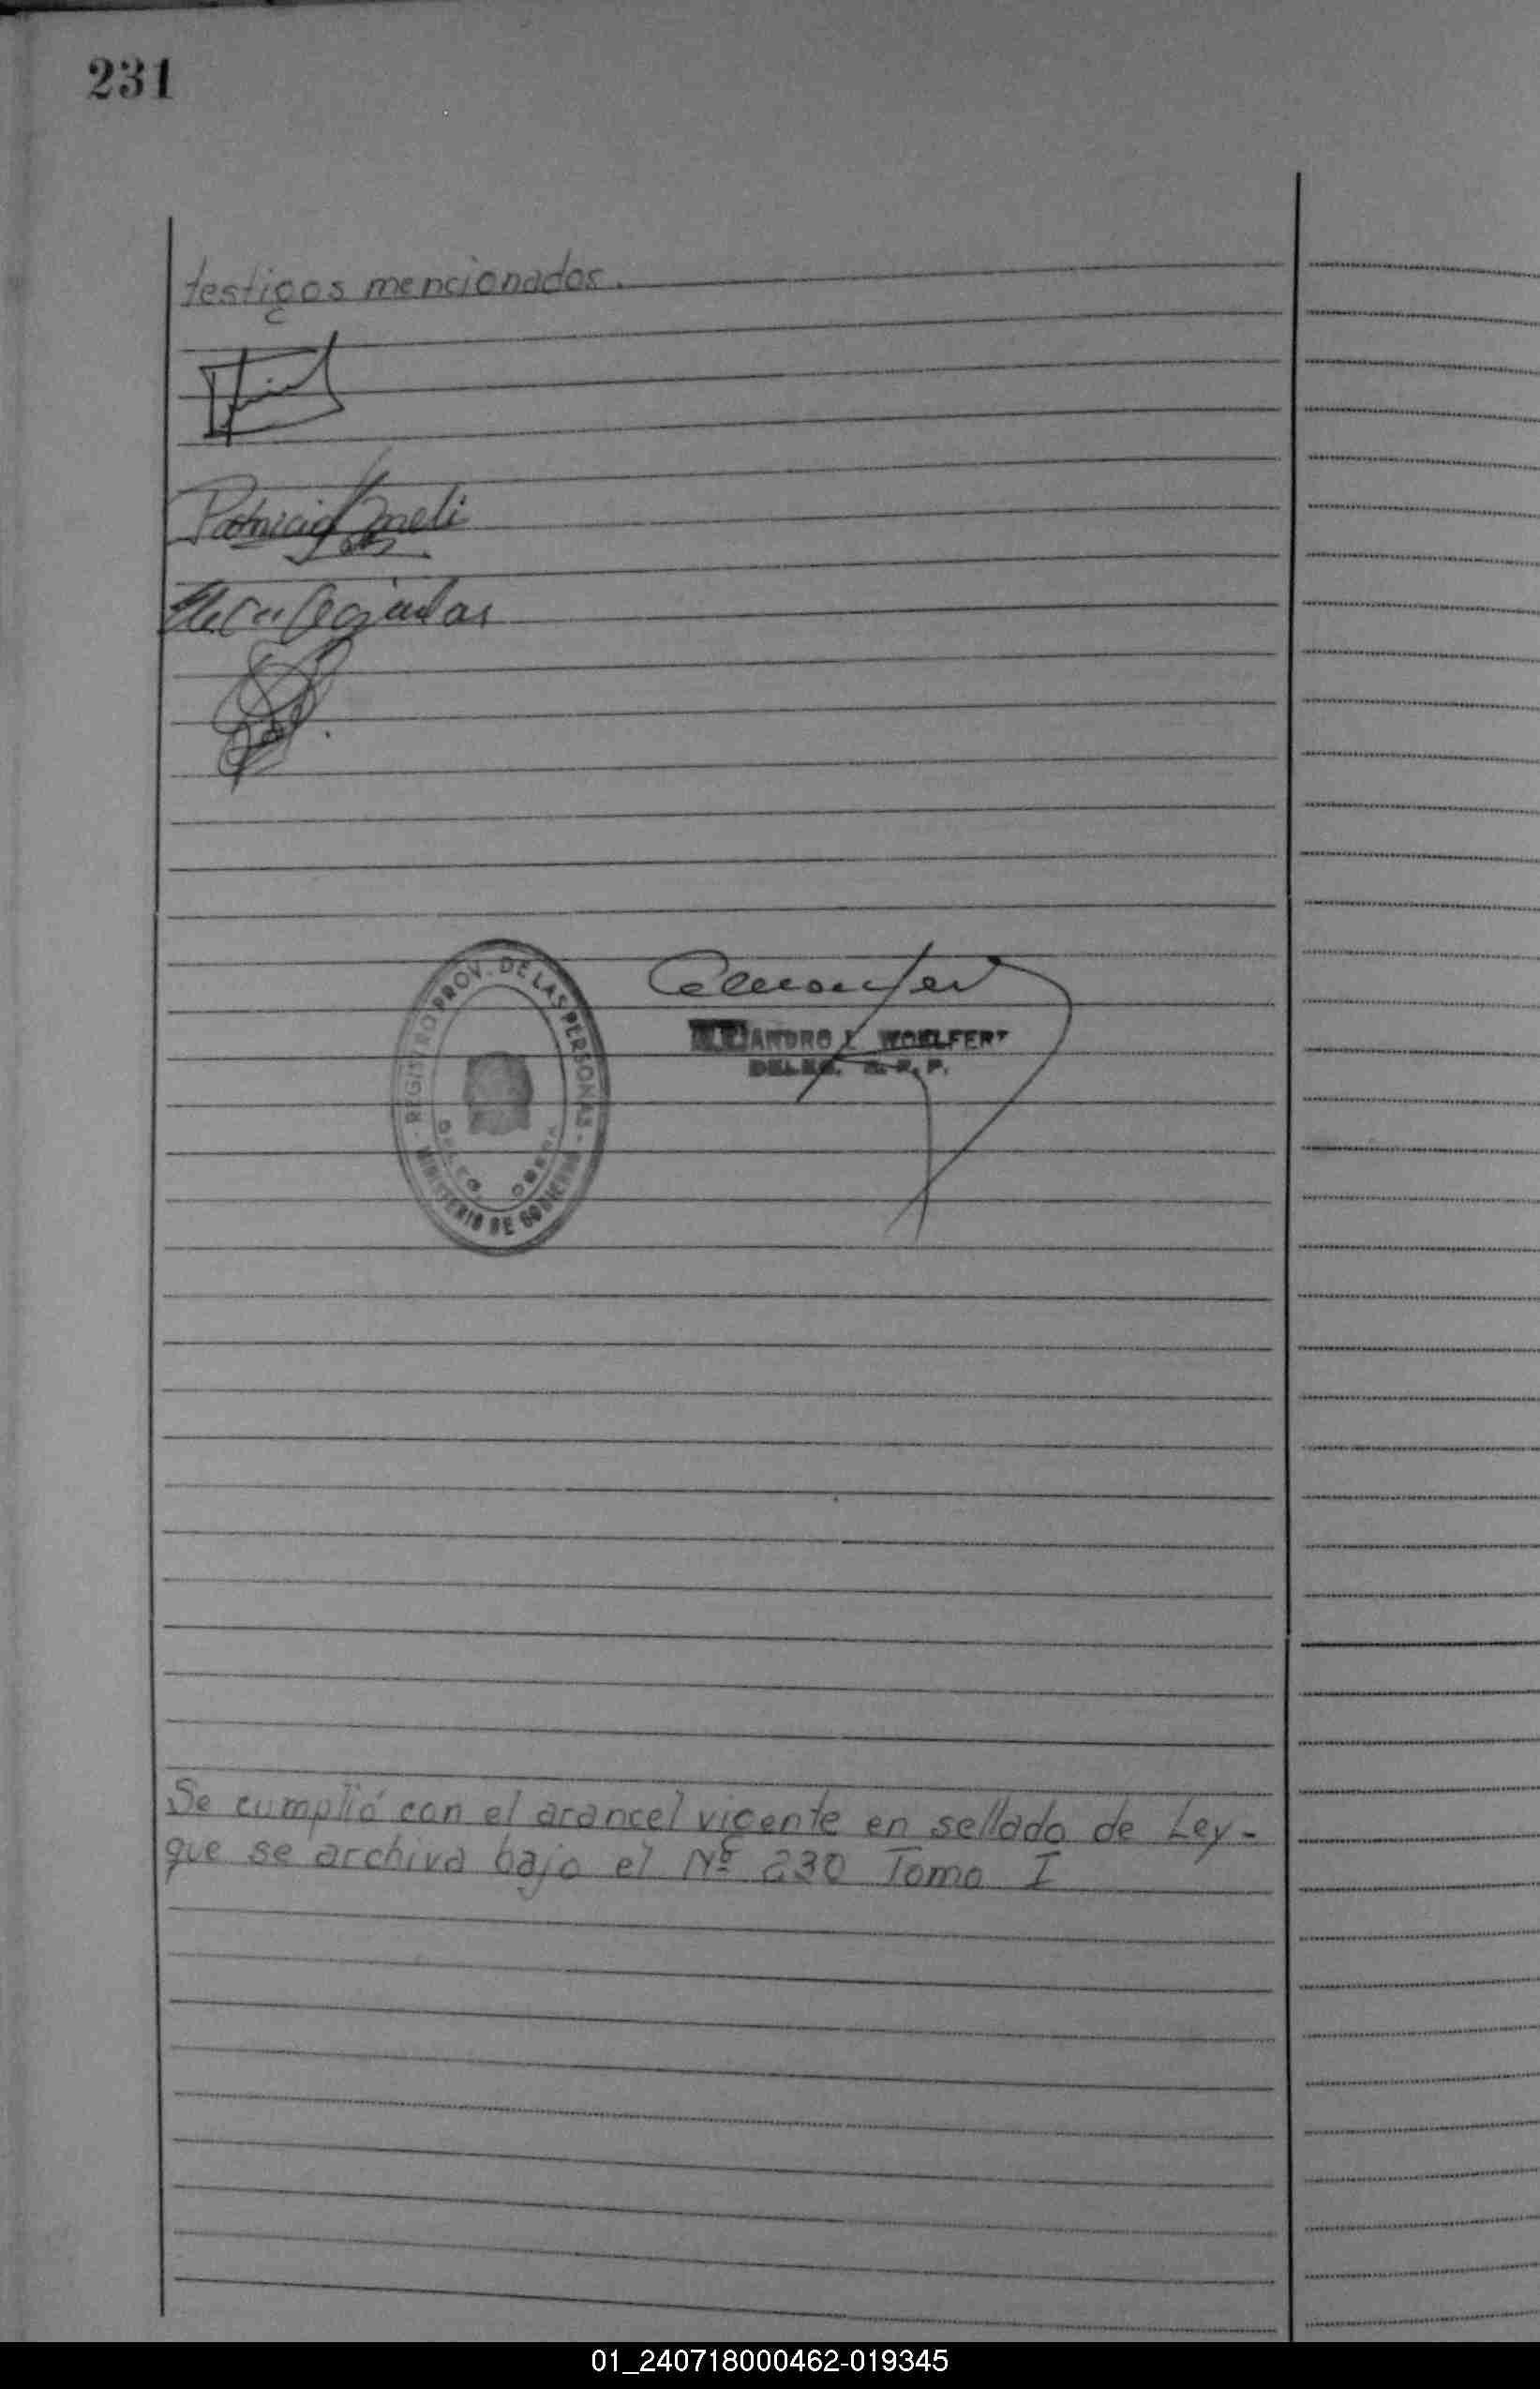 231
testigos mencionados.
Patricia
REGISTRO PROV. DE LAS PERSONAS
MINISTERIO DE GOBIERNO
ANDRO WOELFERT
DELEG. R. P. P.
Se cumplió con el arancel vigente en sellado de Ley-
que se archiva bajo el Nº 230 Tomo I
01_240718000462-019345